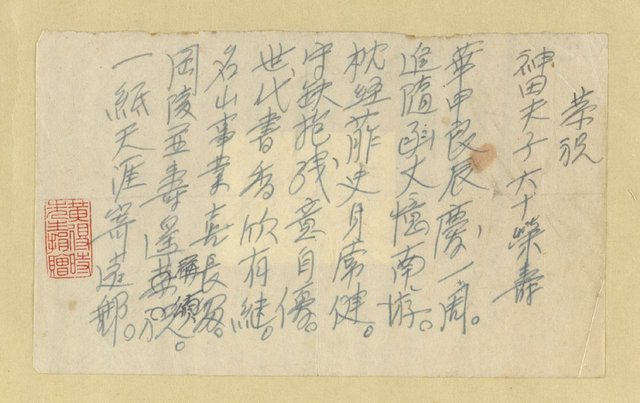 恭祝
神田夫子六十榮壽
華甲良辰慶一周。
追隨函丈憶南游。
枕經葄史身常健。
守缺抱殘意自優。
世代書香欣有繼。
名山事業喜長留。
岡陵亜壽遥稱頌。
一紙天涯寄遠郵。
黃得時
先生捐贈